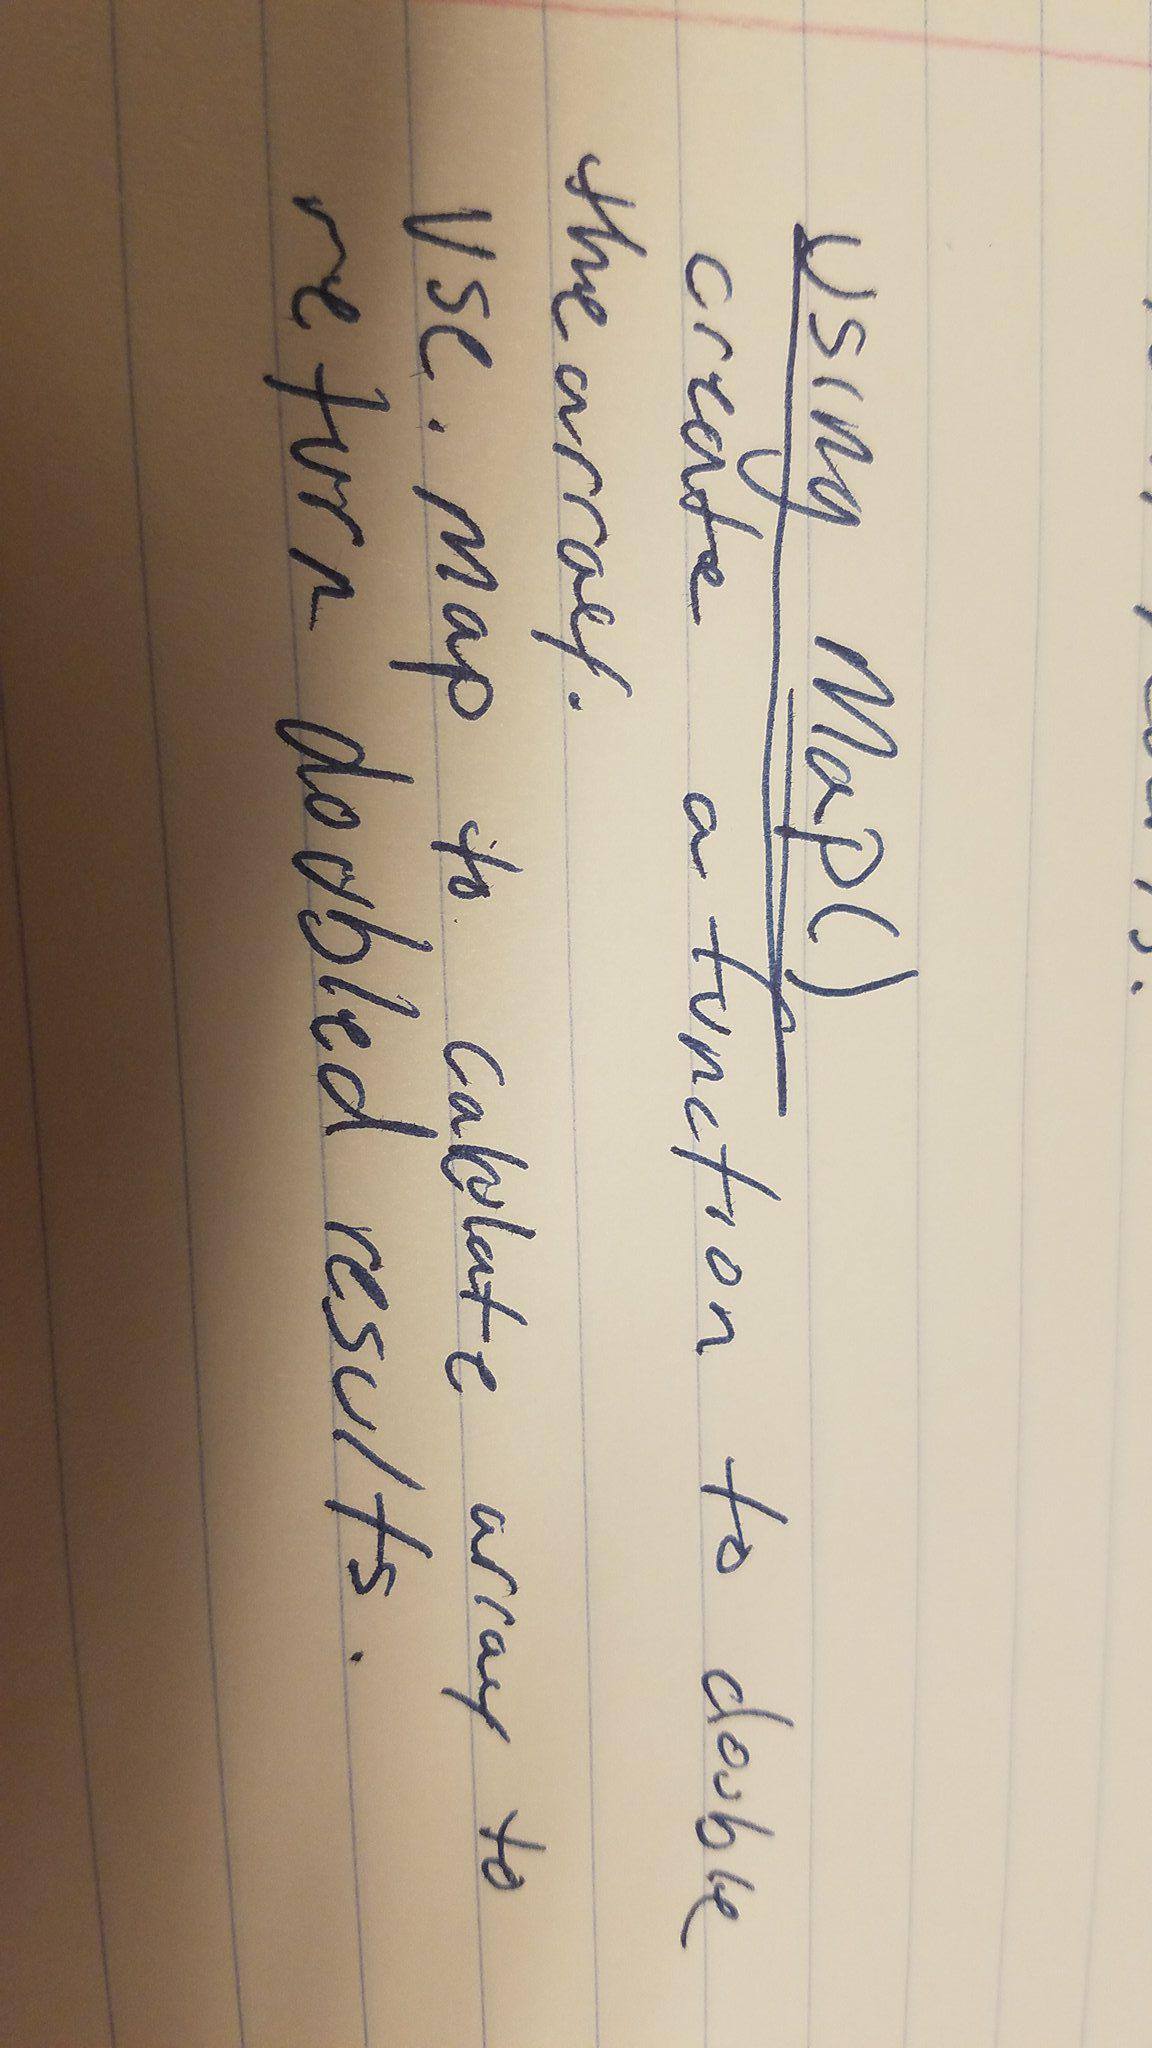 Using Map()
create a function to double
the array.
Use .map to calculate array to
return doubled results.